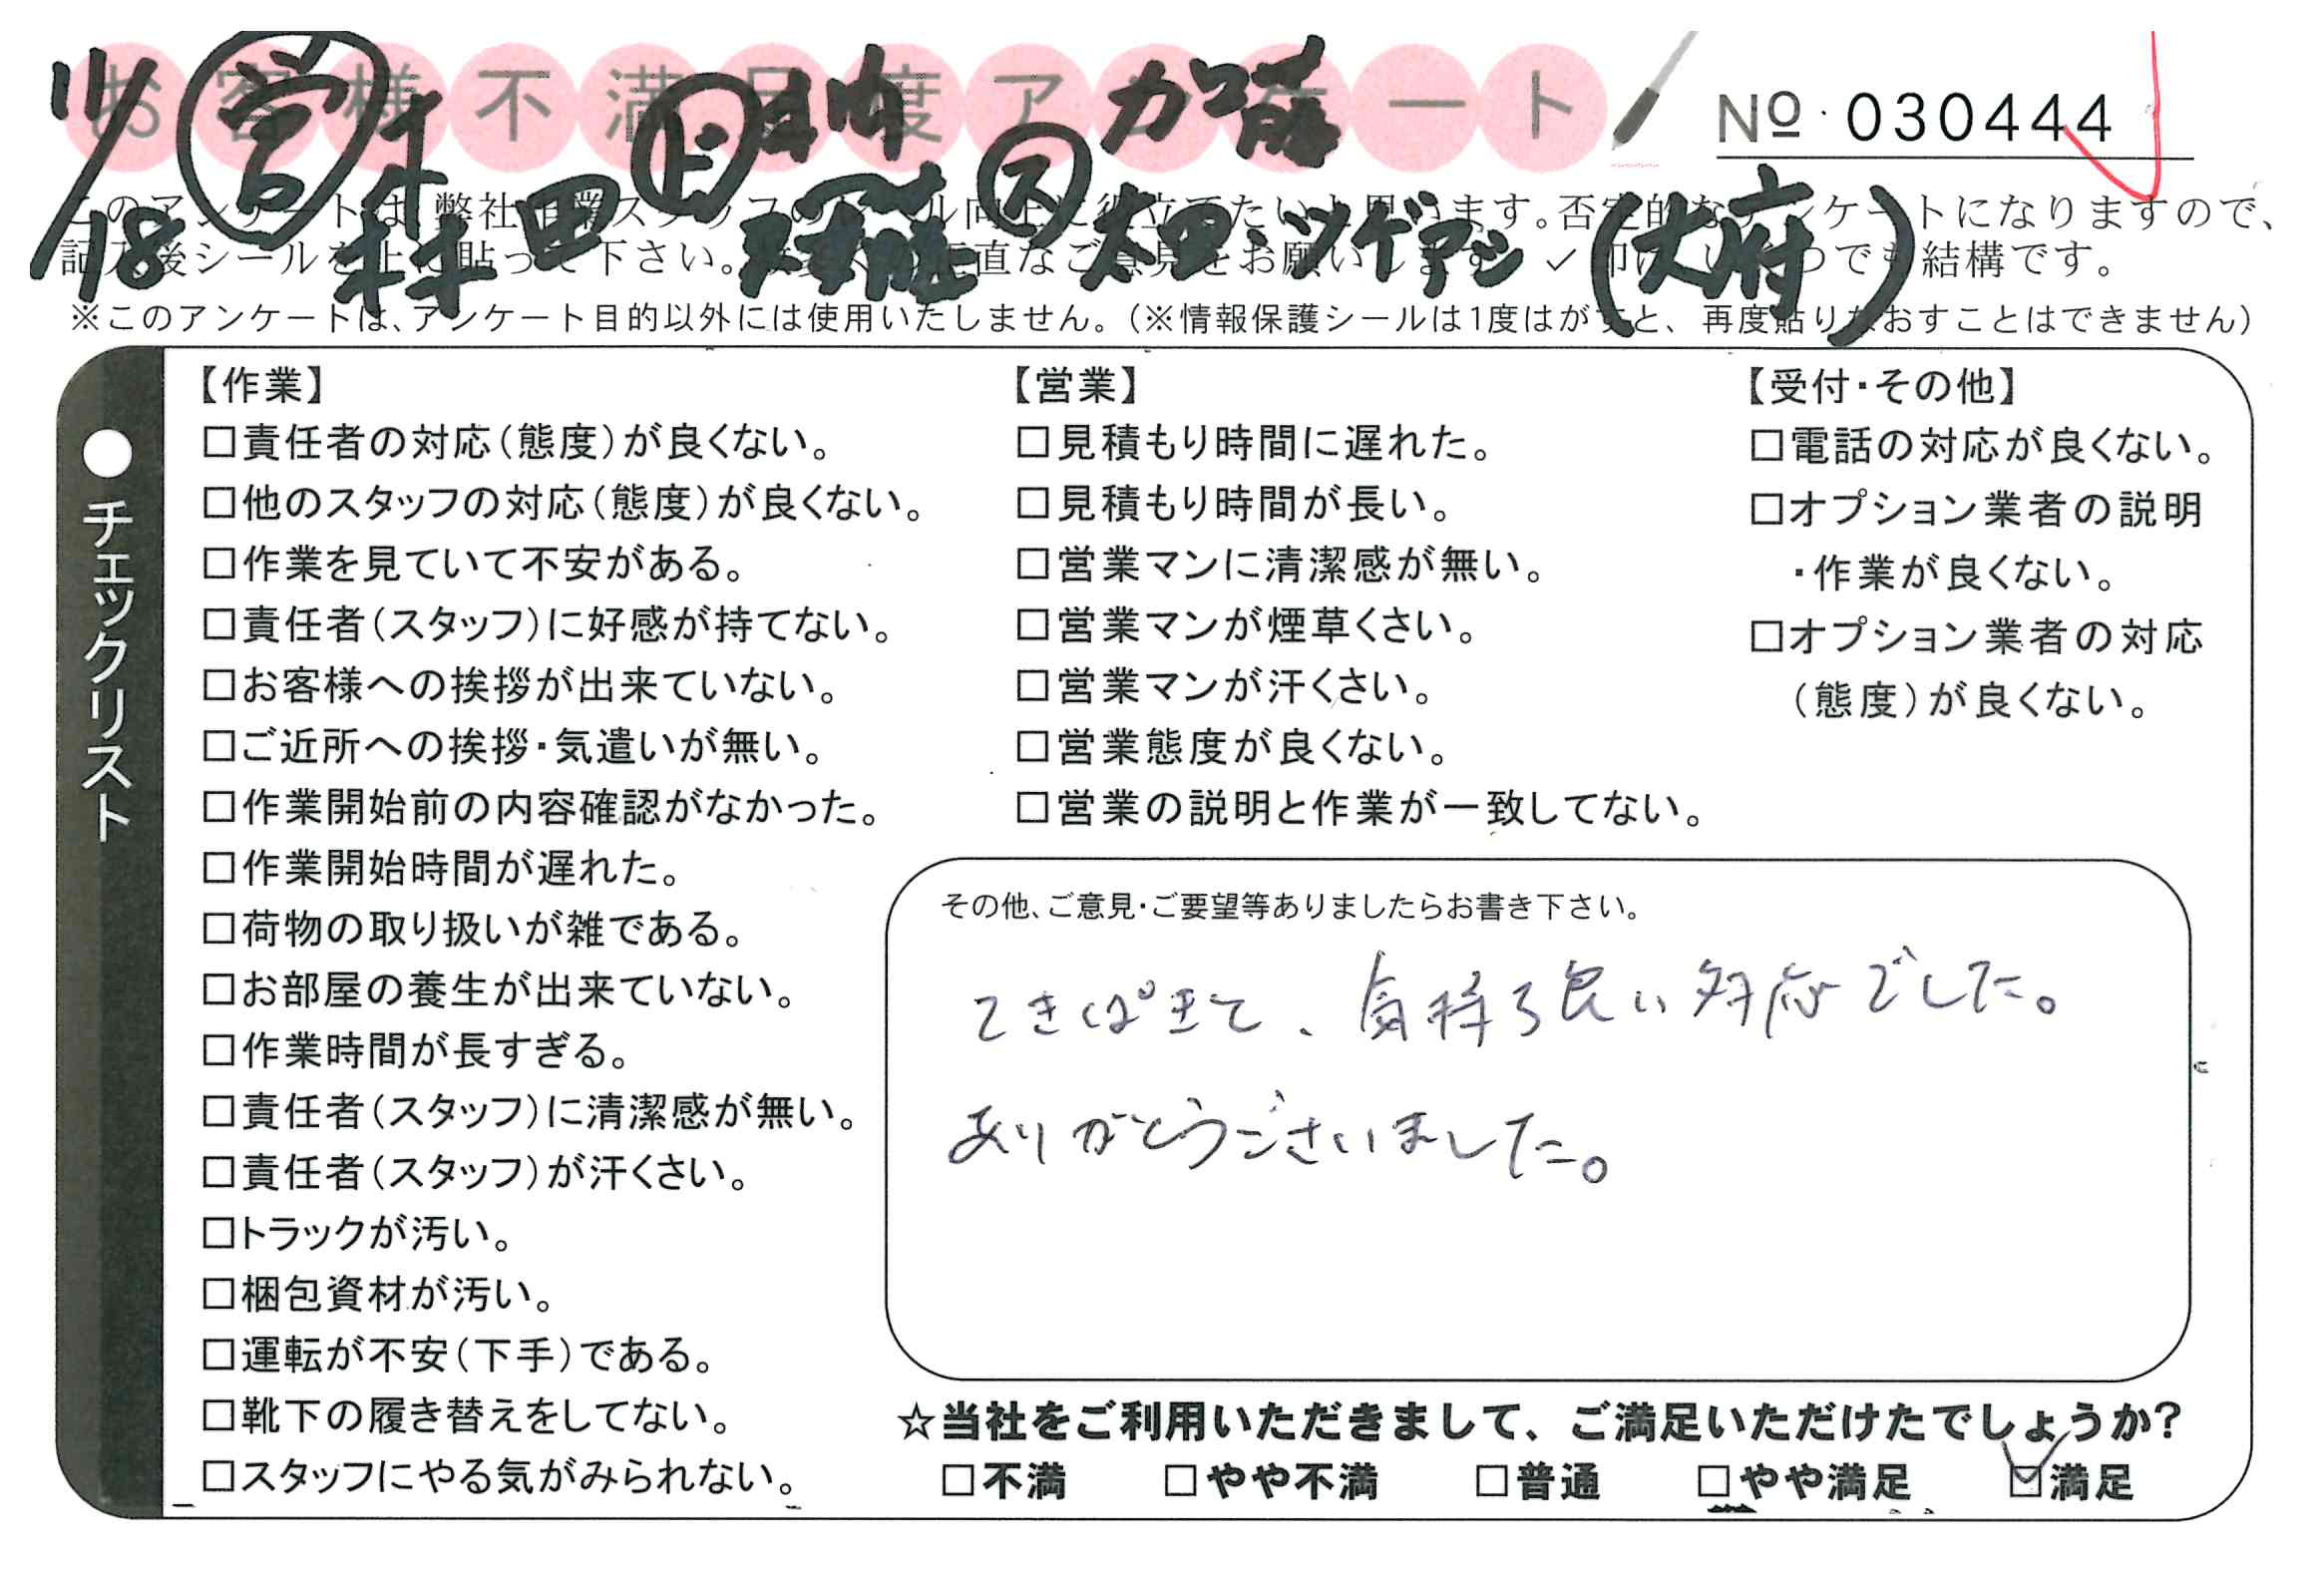 お客様不満足度アンケート
No. 030444
11/18 営 村田 ド 加藤 ス 太田、ツゲ (大府)
このアンケートは、弊社作業スタッフのレベル向上に役立てたいと思います。否定的なアンケートになりますので、
記入後シールを上に貼って下さい。 正直なご意見をお願いします。✓印は、いくつでも結構です。
※このアンケートは、アンケート目的以外には使用いたしません。(※情報保護シールは1度はがすと、再度貼りなおすことはできません)
●チェックリスト
【作業】
□責任者の対応(態度)が良くない。
□他のスタッフの対応(態度)が良くない。
□作業を見ていて不安がある。
□責任者(スタッフ)に好感が持てない。
□お客様への挨拶が出来ていない。
□ご近所への挨拶・気遣いが無い。
□作業開始前の内容確認がなかった。
□作業開始時間が遅れた。
□荷物の取り扱いが雑である。
□お部屋の養生が出来ていない。
□作業時間が長すぎる。
□責任者(スタッフ)に清潔感が無い。
□責任者(スタッフ)が汗くさい。
□トラックが汚い。
□梱包資材が汚い。
□運転が不安(下手)である。
□靴下の履き替えをしてない。
□スタッフにやる気がみられない。
【営業】
□見積もり時間に遅れた。
□見積もり時間が長い。
□営業マンに清潔感が無い。
□営業マンが煙草くさい。
□営業マンが汗くさい。
□営業態度が良くない。
□営業の説明と作業が一致してない。
【受付・その他】
□電話の対応が良くない。
□オプション業者の説明
・作業が良くない。
□オプション業者の対応
(態度)が良くない。
その他、ご意見・ご要望等ありましたらお書き下さい。
てきぱきと、気持ち良い対応でした。
ありがとうございました。
☆当社をご利用いただきまして、ご満足いただけたでしょうか?
□不満 □やや不満 □普通 □やや満足 ☑満足